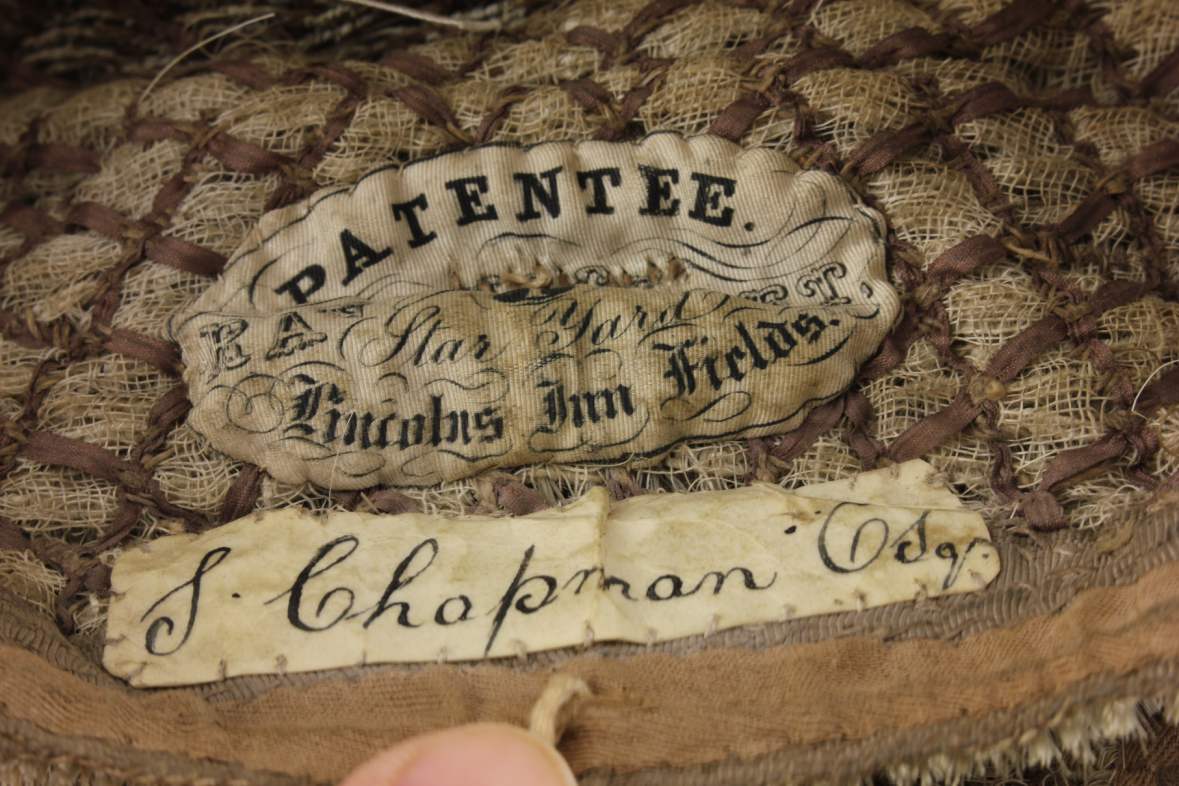 PATENTEE.
Star Yard
Lincolns Inn Fields.
S. Chapman Esqr.